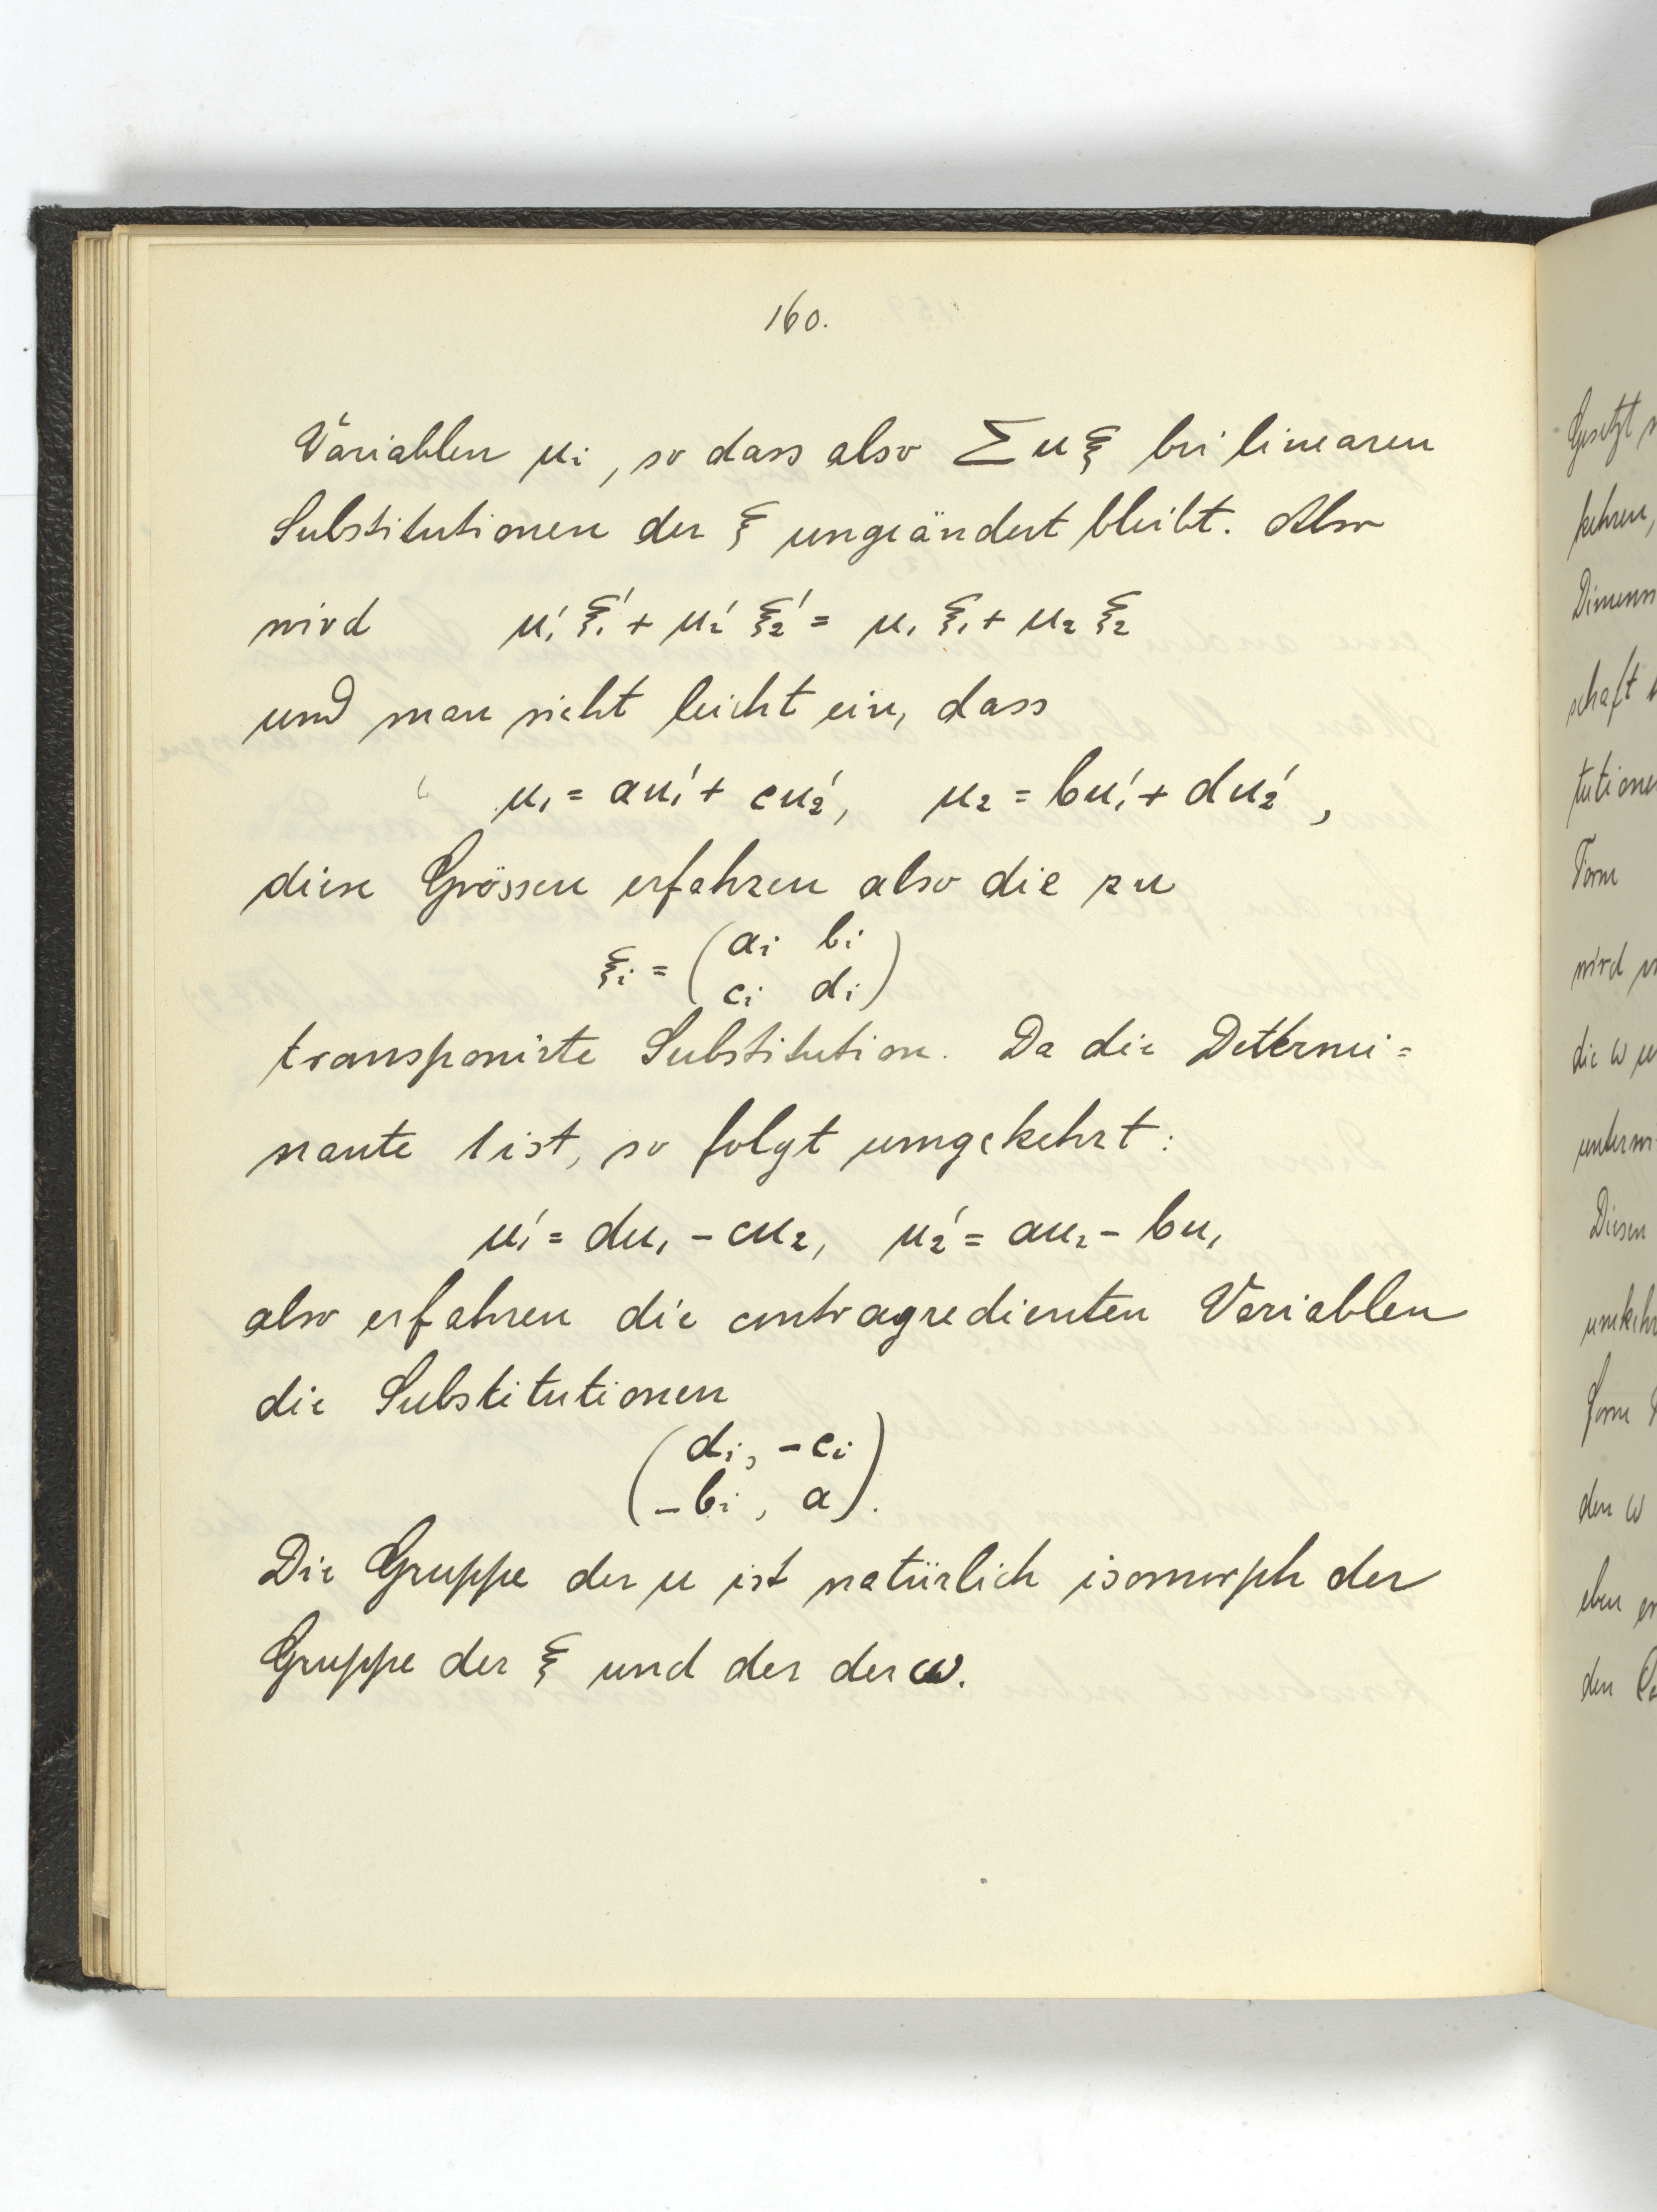 160.
Variablen u_i, so dass also Σ u ξ bei linearen
Substitutionen der ξ ungeändert bleibt. Also
wird u₁' ξ₁' + u₂' ξ₂' = u₁ ξ₁ + u₂ ξ₂
und man sieht leicht ein, dass
u₁ = au₁' + cu₂', u₂ = bu₁' + du₂',
diese Grössen erfahren also die zu
ξ_i = (a_i b_i
c_i d_i)
transponirte Substitution. Da die Determi=
nante 1 ist, so folgt umgekehrt:
u₁' = du₁ – cu₂, u₂' = au₂ – bu₁
also erfahren die contragredienten Variablen
die Substitutionen
(d_i, –c_i
–b_i, a).
Die Gruppe der u ist natürlich isomorph der
Gruppe der ξ und der der ω.
Gesetzt
kehren,
schaft
Form
wird
die ω
Diesen
form
den ω
eben
den